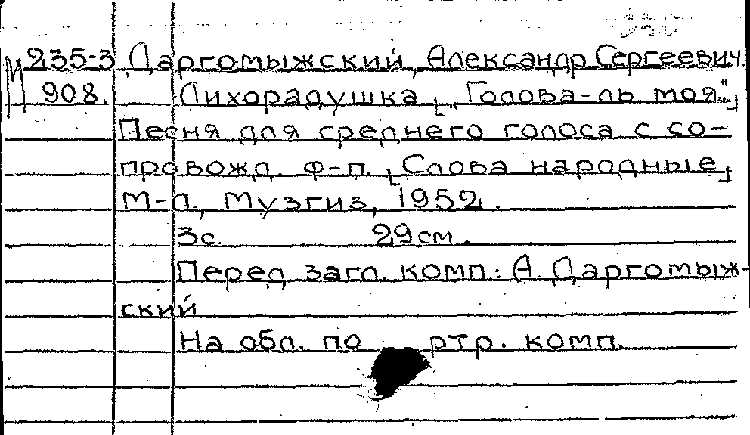 М 235-3 Даргомыжский, Александр Сергеевич.
908. Лихорадушка [„Голова-ль моя..."]
Песня для среднего голоса с со-
провожд. ф-п. [Слова народные]
М-Л., Музгиз, 1952.
3с. 29см.
Перед загл. комп.: А. Даргомыж-
ский
На обл. по ртр. комп.